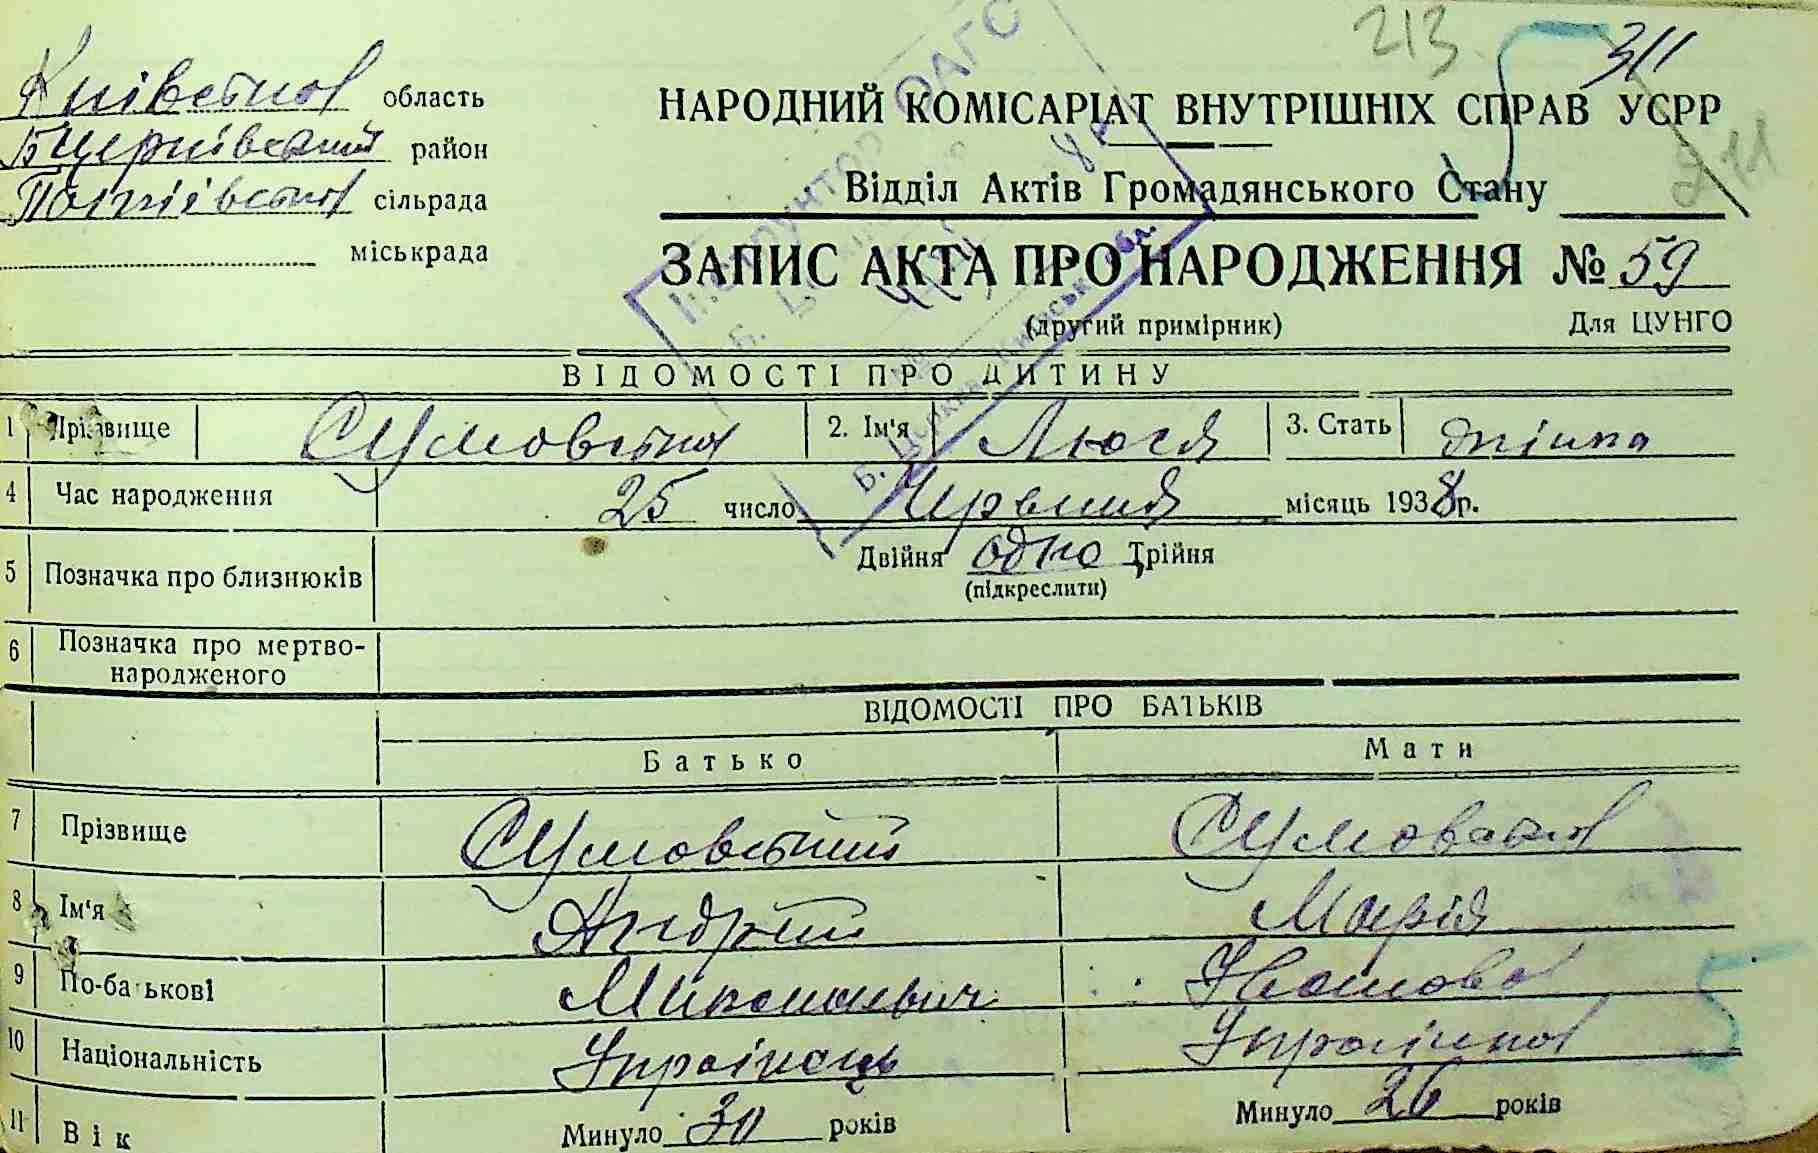 213 311
Київська область
БЦерківський район
сільрада
міськрада
211
НАРОДНИЙ КОМІСАРІАТ ВНУТРІШНІХ СПРАВ УСРР
Відділ Актів Громадянського Стану
ЗАПИС АКТА ПРО НАРОДЖЕННЯ № 59
(другий примірник) Для ЦУНГО
ВІДОМОСТІ ПРО ДИТИНУ
1 Прізвище Сумовська 2. Ім'я Люся 3. Стать дівка
4 Час народження 25 число Червня місяць 1938 р.
5 Позначка про близнюків Двійня одно Трійня
(підкреслити)
6 Позначка про мертво-
народженого
ВІДОМОСТІ ПРО БАТЬКІВ
Батько Мати
7 Прізвище Сумовський Сумовська
8 Ім'я Андрій Марія
9 По-батькові Миколаевич Івановна
10 Національність Українець Українка
11 Вік Минуло 30 років Минуло 26 років